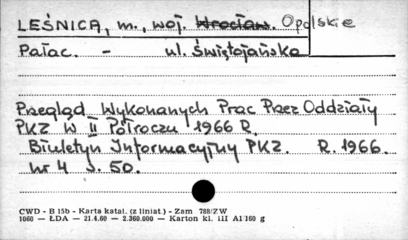 LEŚNICA, m., woj. Wrocław. Opolskie
Pałac. - ul. Świętojańska
Przegląd Wykonanych Prac Przez Oddziały
PKZ W II Półroczu 1966 R.
Biuletyn Informacyjny PKZ. R. 1966.
nr 4 s. 50.
CWD - B 15b - Karta katal. (z liniat.) - Zam 788/ZW
1060 — ŁDA — 21.4.60 — 2.360.000 — Karton kl. III A1/160 g